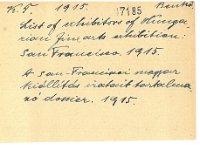 1915.
17185
List of exhibitors of Hungarian fine arts exhibition:
San Francisco. 1915.
A san-franciscoi magyar
kiállítás iratait tartalma-
zó dossier. 1915.